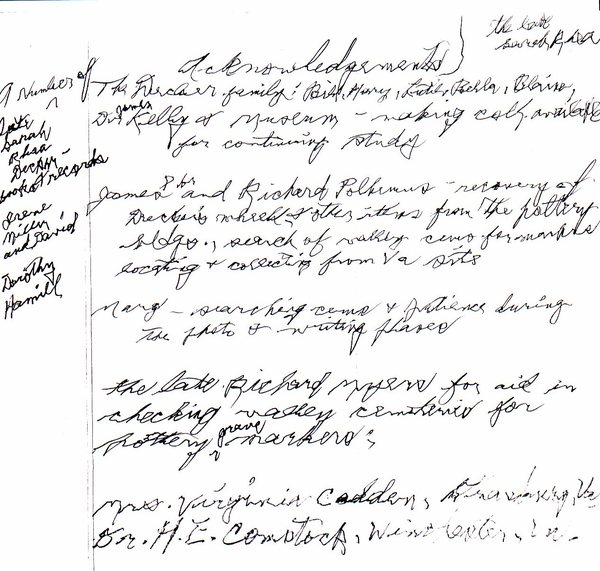 the late
Sarah R
Acknowledgements
A number of
The Decker family: Bill, Henry, Bella,
Dr. James Kelly of Museum - making coll. available
for continuing study
late
Sarah
Rhea
Decker -
books & records
Irene
and David
Dorothy
Hamill
James and Richard Polhemus - recovery of
Decker's wheel & other items from the pottery
bldgs., search of valley cems for markers
locating & collecting from Va sites
Marg - searching cems & patience during
the photo & writing phases
the late Richard Myers for aid in
checking valley cemeteries for
pottery grave markers;
Mrs. Virginia
Dr. H.E. Comstock, Winchester,